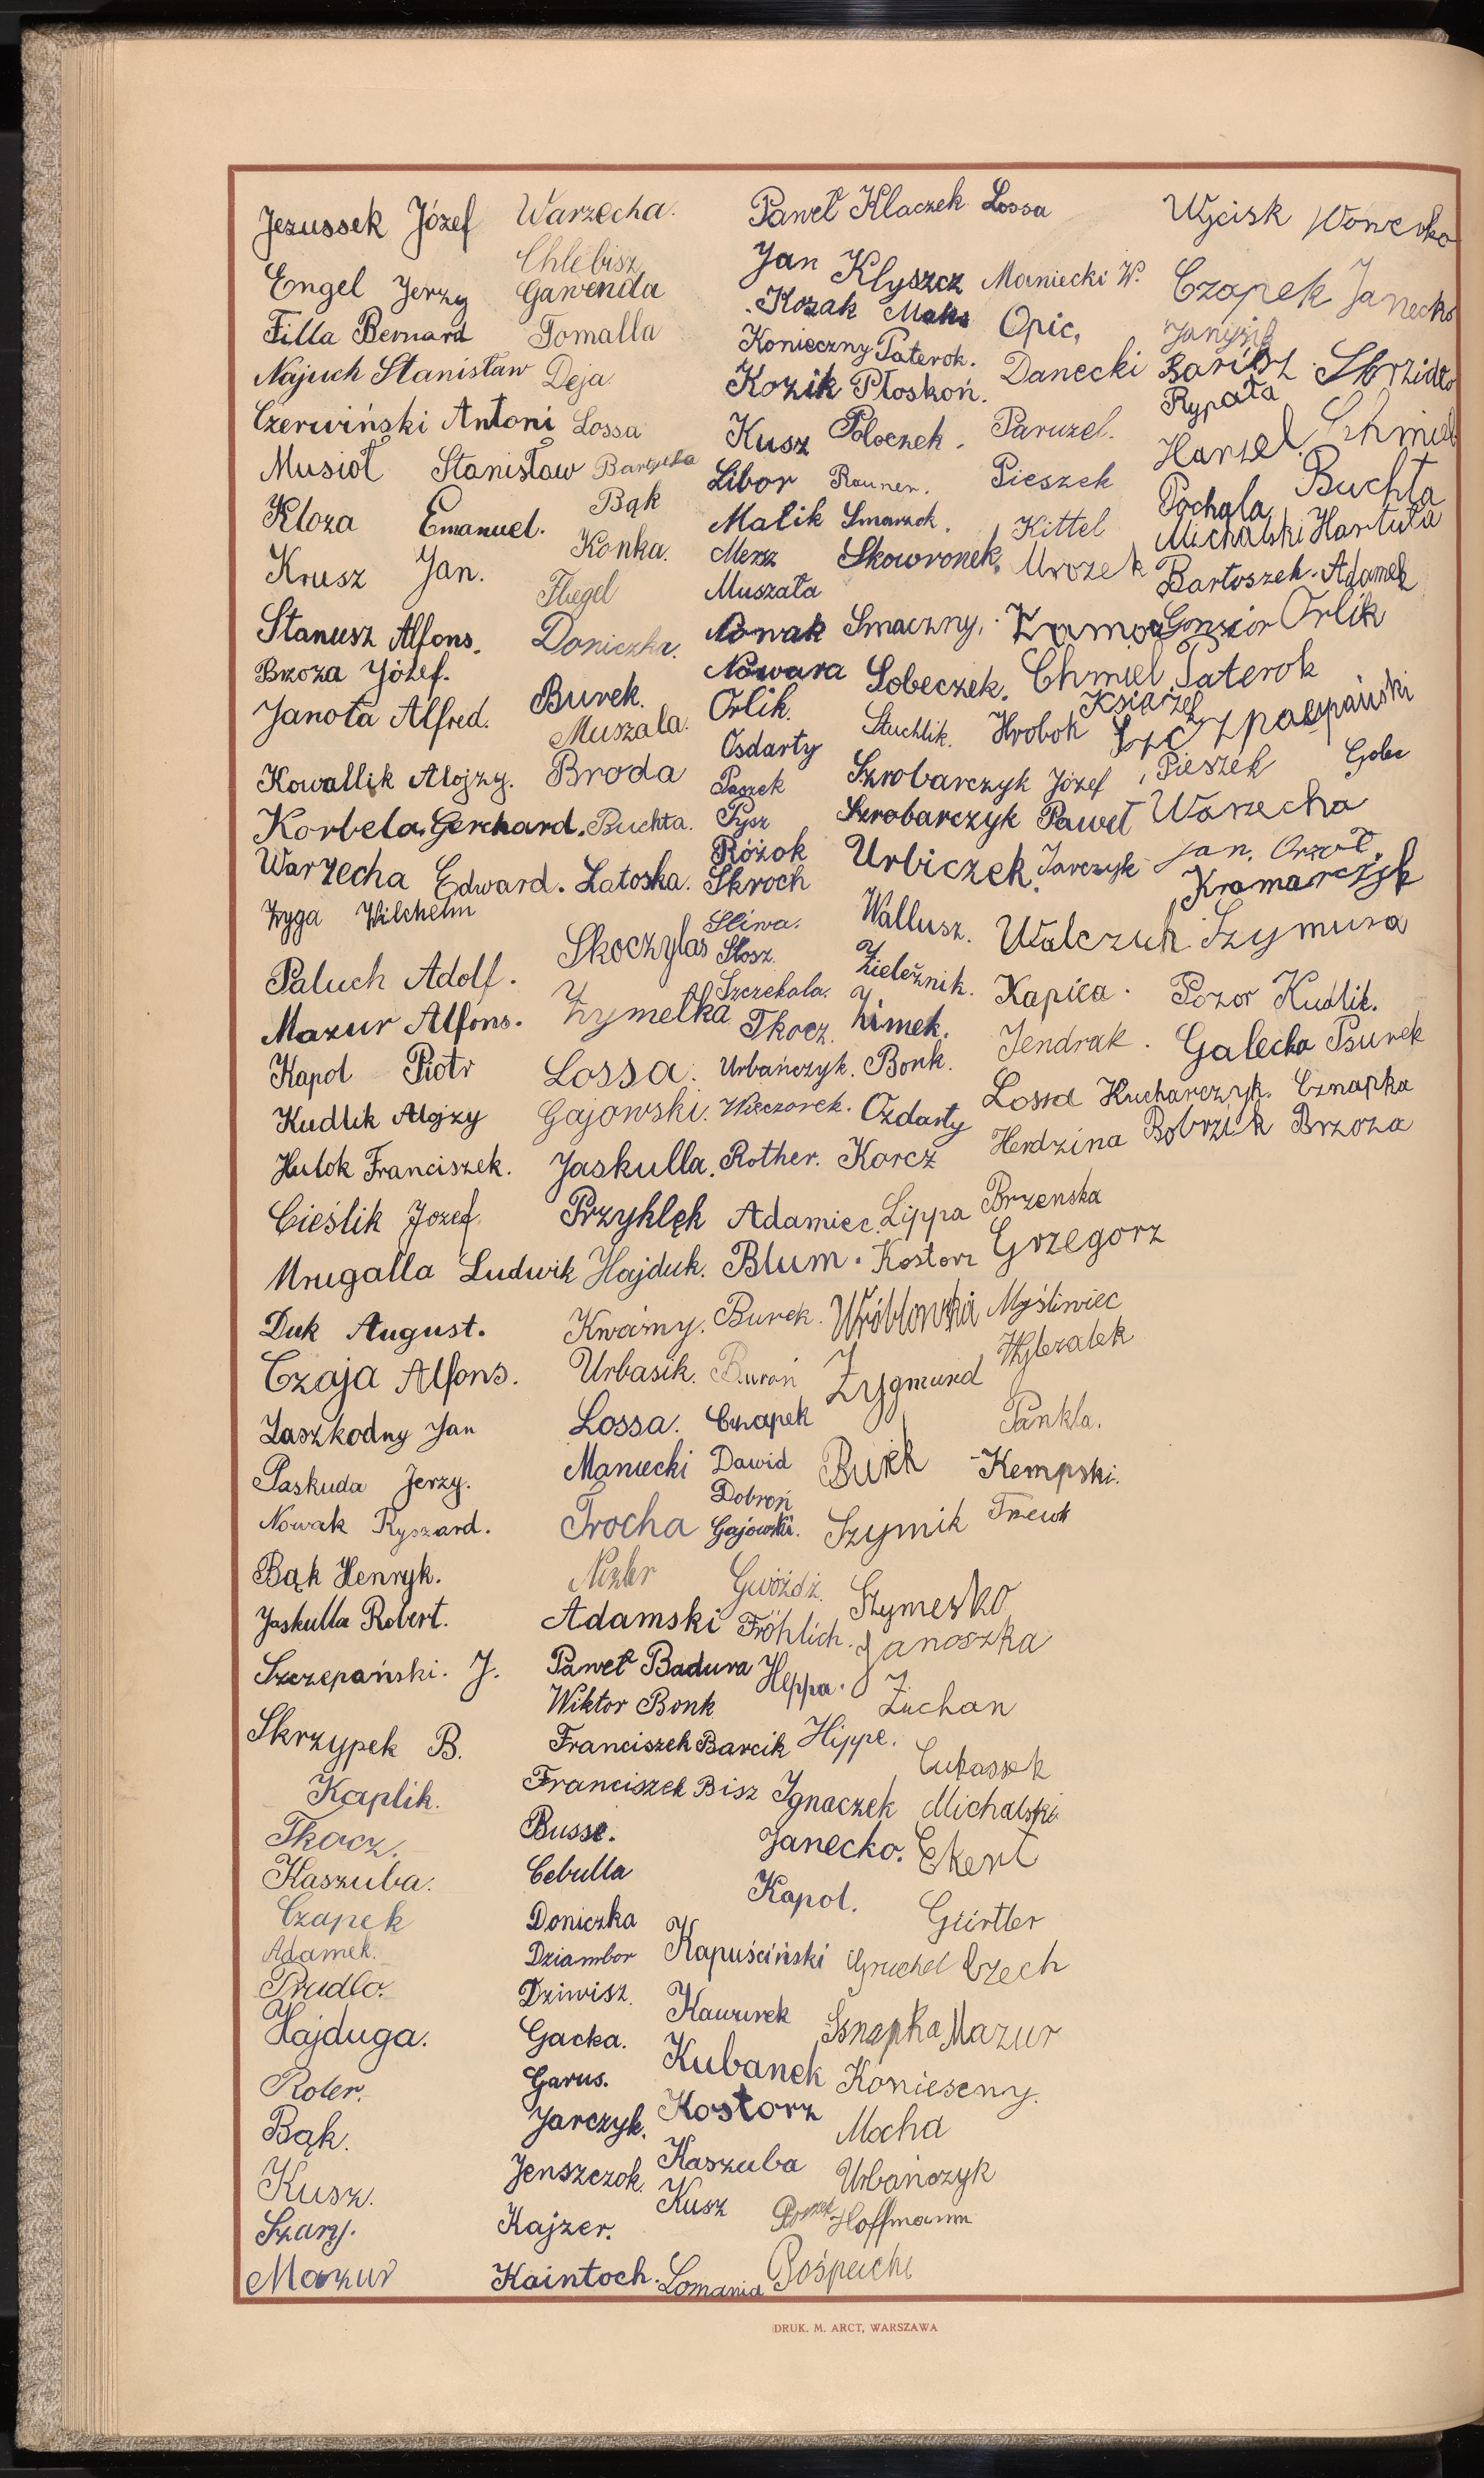 Jezussek Józef
Engel Jerzy
Filla Bernard
Najuch Stanisław
Czerwiński Antoni
Musioł Stanisław
Kloza Emanuel.
Krusz Jan.
Stanusz Alfons.
Brzoza Józef.
Janota Alfred.
Kowallik Alojzy.
Korbela Gerchard.
Warzecha Edward.
Zyga Wilchelm
Paluch Adolf.
Mazur Alfons.
Kapol Piotr
Kudlik Alojzy
Hulok Franciszek.
Cieślik Jozef.
Mrugalla Ludwik
Duk August.
Czaja Alfons.
Zaszkodny Jan
Paskuda Jerzy.
Nowak Ryszard.
Bąk Henryk.
Jaskulla Robert.
Szczepański. J.
Skrzypek B.
Kaplik.
Tkocz.
Kaszuba.
Czapek
Adamek.
Prudlo.
Hajduga.
Roler.
Bąk.
Kusz.
Szary.
Mazur
Warzecha.
Chlebisz
Gawenda
Tomalla
Deja
Lossa
Bąk
Konka.
Flegel
Doniczka.
Burek.
Muszala.
Broda
Buchta.
Latoska.
Skoczylas
Zymełka
Lossa.
Gajowski.
Jaskulla.
Przyklęk
Hajduk.
Kwaśny.
Urbasik.
Lossa.
Maniecki
Trocha
Adamski
Paweł Badura
Wiktor Bonk
Franciszek Barcik
Franciszek Bisz
Busse.
Cebulla
Doniczka
Dziambor
Dziwisz.
Gacka.
Garus.
Jarczyk.
Jenszczok.
Kajzer.
Kaintoch.
Paweł Klaczek
Jan Klyszcz
Kozak Maks
Konieczny Paterok.
Kozik Płoskoń.
Kusz Poloczek.
Libor Rauner.
Malik Smarzek.
Merz Skowronek.
Muszała
Nowak Smaczny.
Nowara Sobeczek.
Orlik. Stuchlik.
Osdarty
Paszek
Pysz
Różok
Skroch
Śliwa.
Słosz.
Szczekala.
Tkocz.
Urbańczyk.
Wieczorek.
Rother.
Adamiec.
Blum.
Burek.
Buroń
Czapek
Dawid
Dobroń
Gajowski.
Gwóźdź.
Fröhlich.
Heppa.
Hippe.
Ignaczek
Janecko.
Kapol.
Kapuściński
Kawurek
Kubanek
Kostorz
Kaszuba
Kusz
Lomania
Szrobarczyk Józef
Szrobarczyk Paweł
Urbiczek.
Wallusz.
Zieleźnik.
Zimek.
Bonk.
Ozdarty
Korcz
Lippa
Kostorz
Zygmund
Szymik
Janoszka
Zuchan
Lukassek
Michalski
Ekert
Gürtler
Gruchel Czech
Mazur
Mocha
Urbańczyk
Hoffmann
Lossa
Maniecki W.
Opic,
Danecki
Paruzel.
Pieszek
Kittel
Mrozek
Chmiel
Książek
Hrobok
Jarczyk
Walczuk
Kapica.
Jendrak.
Lossa
Herdzina
Brzenska
Grzegorz
Myśliwiec
Wylezalek
Pankla.
Kempski.
Wycisk
Czapek Janecko
Rypała
Harzel Chmiel
Pochala Buchta
Michalski Hartuła
Bartoszek. Adamek
Gonsior Orlik
Paterok
Pieszek
Warzecha
Kramarczyk
Szymura
Pozor Kudlik.
Galecka Psurek
Kucharczyk. Cznapka
Bobrzik Brzoza
DRUK. M. ARCT, WARSZAWA